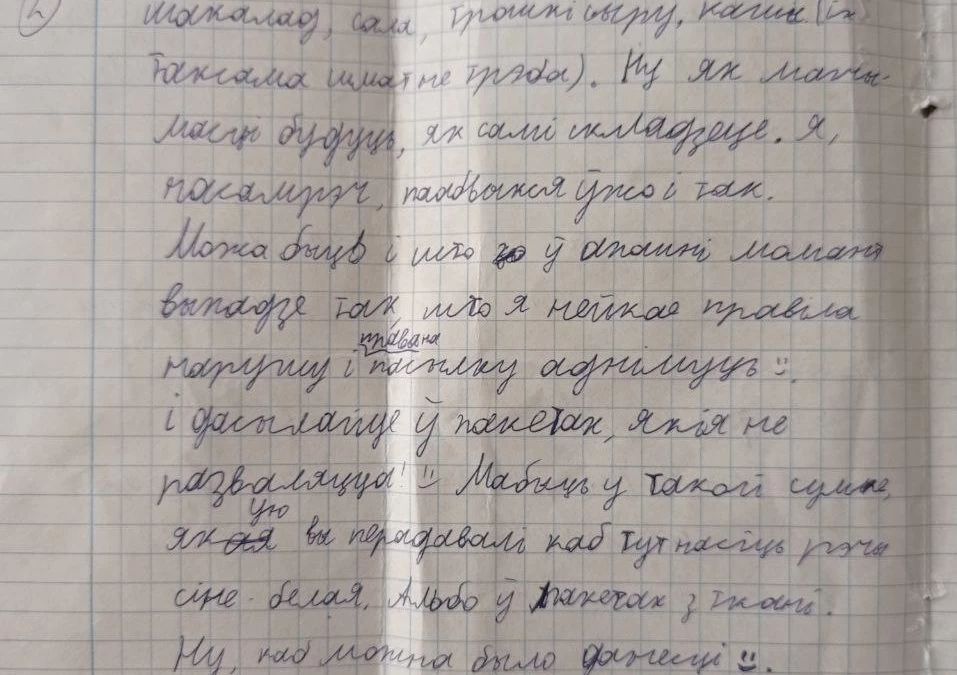 2) шакалад, сала, трошкі сыру, кашы (іх
таксама шмат не трэба). Ну як магчы-
масць будуць, як самі складзеце. Я,
насамрэч, паабвыкся ўжо і так.
Можа быць і што ў апошні момант
выпадзе так, што я нейкае правіла
права на
парушу і пасылку аднімуць :).
і дасылайце ў пакетах, якія не
разваляцца! :) Мабыць у такой сумке,
ую
якая вы перадавалі каб тут насіць рэчы
сіне-белая. Альбо ў пакетах з ткані.
Ну, каб можна было данесці :).